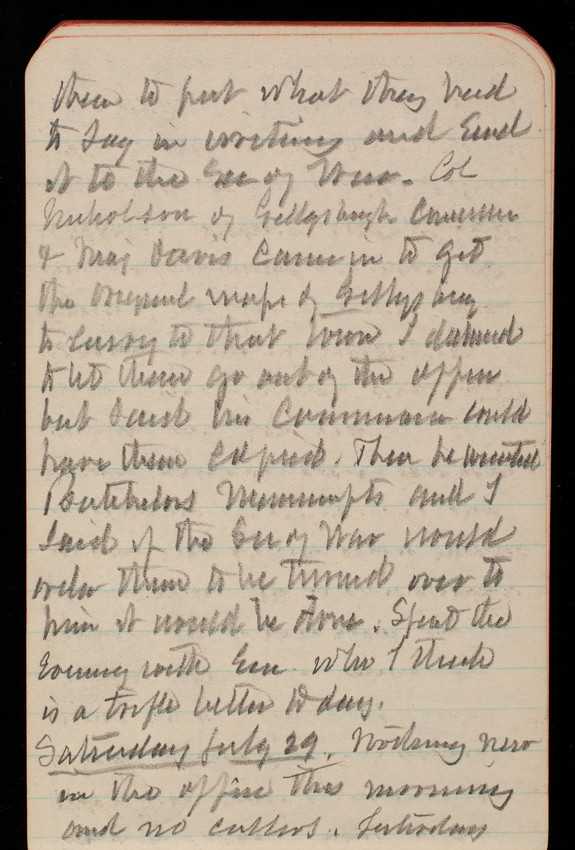 them to put what they had
to say in writing and send
it to the Sec of War. Col
Nicholson of Gettysburgh Commission
& Maj Davis came in to get
the original maps of Gettysburg
to carry to that town I
to let them go out of the office
but said his Commission could
have them copied. Then he wanted
Batchelors Manuscripts and I
said if the Sec of War would
order them to be turned over to
him it would be done. Spent the
Evening with Eva who I think
is a trifle better to day.
Saturday July 29. Nothing new
in the office this morning
and no callers. Saturday